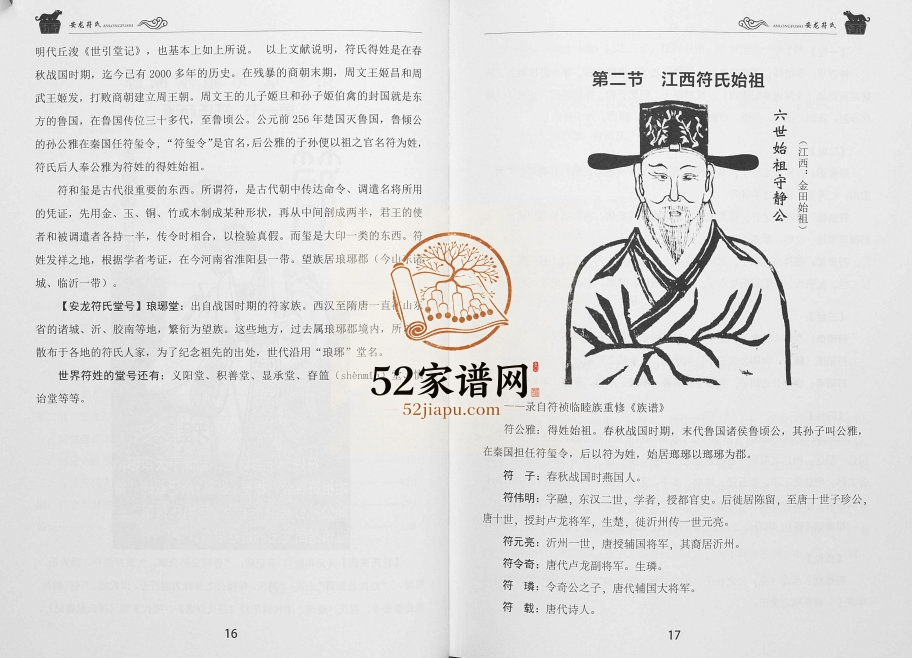 安龙符氏 ANLONGFUSHI
明代丘浚《世引堂记》，也基本上如上所说。 以上文献说明，符氏得姓是在春
秋战国时期，迄今已有 2000 多年的历史。在残暴的商朝末期，周文王姬昌和周
武王姬发，打败商朝建立周王朝。周文王的儿子姬旦和孙子姬伯禽的封国就是东
方的鲁国，在鲁国传位三十多代，至鲁顷公。公元前 256 年楚国灭鲁国，鲁倾公
的孙公雅在秦国任符玺令，“符玺令”是官名，后公雅的子孙便以祖之官名符为姓，
符氏后人奉公雅为符姓的得姓始祖。
符和玺是古代很重要的东西。所谓符，是古代朝中传达命令、调遣名将所用
的凭证，先用金、玉、铜、竹或木制成某种形状，再从中间剖成两半，君王的使
者和被调遣者各持一半，传令时相合，以检验真假。而玺是大印一类的东西。符
姓发祥之地，根据学者考证，在今河南省淮阳县一带。望族居琅琊郡（今山东诸
城、临沂一带）。
【安龙符氏堂号】琅琊堂：出自战国时期的符家族。西汉至隋唐一直
省的诸城、沂、胶南等地，繁衍为望族。这些地方，过去属琅琊郡境内，所
散布于各地的符氏人家，为了纪念祖先的出处，世代沿用“琅琊”堂名。
世界符姓的堂号还有：义阳堂、积善堂、显承堂、眘
诒堂等等。
16
ANLONGFUSHI 安龙符氏
第二节 江西符氏始祖
六世始祖守静公
（江西：金田始祖）
——录自符祯临睦族重修《族谱》
符公雅：得姓始祖。春秋战国时期，末代鲁国诸侯鲁顷公，其孙子叫公雅，
在秦国担任符玺令，后以符为姓，始居瑯琊以瑯琊为郡。
符 子：春秋战国时燕国人。
符伟明：字融，东汉二世，学者，授都官史。后徙居陈留，至唐十世子珍公，
唐十世，授封卢龙将军，生楚，徙沂州传一世元亮。
符元亮：沂州一世，唐授辅国将军，其裔居沂州。
符令奇：唐代卢龙副将军。生璘。
符 璘：令奇公之子，唐代辅国大将军。
符 载：唐代诗人。
17
52家谱网
52jiapu.com